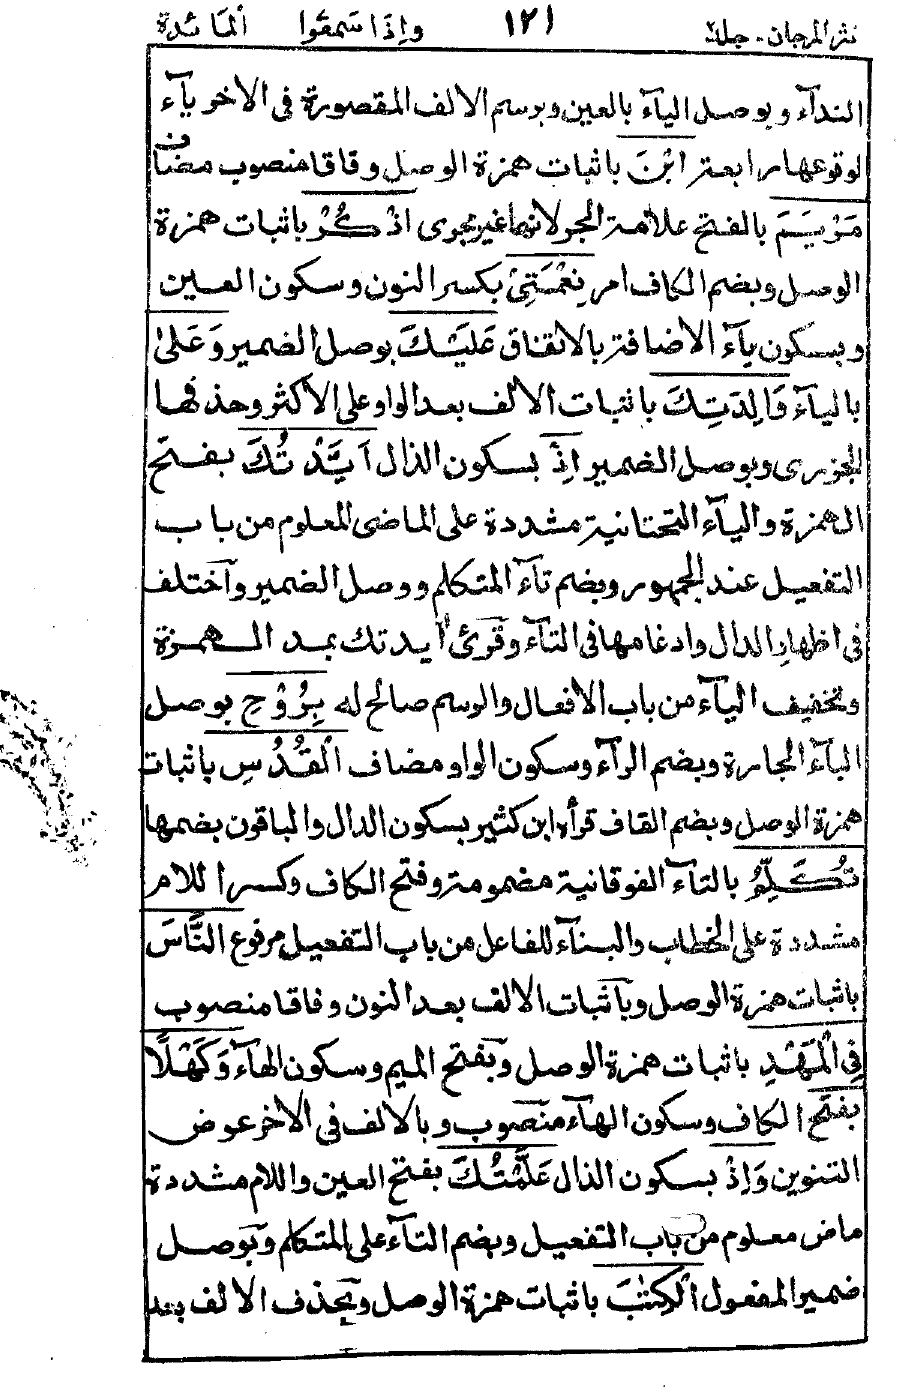 نثر المرجان - جلد٢ ١٢١ وإذا سمعوا ألمائدة
الندآء وبوصل اليآء بالعين وبرسم الالف المقصورة فى الاخر يآء
لوقوعها رابعة ابْنَ باثبات همزة الوصل وفاقا منصوب مضاف
مَرْيَمَ بالفتح علامة الجر لانها غير مجرى اذْكُرْ باثبات همزة
الوصل وبضم الكاف امر نِعْمَتِىْ بكسر النون وسكون العين
وبسكون يآء الاضافة بالاتفاق عَلَيْكَ بوصل الضمير وَعَلىٰ
باليآء وَالِدَتِكَ باثبات الالف بعد الواو على الاكثر وحذفها
الجزرى وبوصل الضمير اِذْ بسكون الذال اَيَّدْتُكَ بفتح
الهمزة واليآء التحتانية مشددة على الماضى المعلوم من باب
التفعيل عند الجمهور وبضم تآء المتكلم ووصل الضمير وآختلف
فى اظهار الدال وادغامها فى التآء وقرئ أيدتك بمد الهمزة
وتخفيف اليآء من باب الافعال والرسم صالح له بِرُوْحِ بوصل
البآء الجارة وبضم الرآء وسكون الواو مضاف الْقُدُسِ باثبات
همزة الوصل وبضم القاف قرأه ابن كثير بسكون الدال والباقون بضمها
تُكَلِّمُ بالتآء الفوقانية مضمومة وفتح الكاف وكسر اللام
مشددة على الخطاب والبنآء للفاعل من باب التفعيل مرفوع النَّاسَ
باثبات همزة الوصل وبآثبات الالف بعد النون وفاقا منصوب
فِى الْمَهْدِ باثبات همزة الوصل وبفتح الميم وسكون الهآء وَكَهْلًا
بفتح الكاف وسكون الهآء منصوب وبالالف فى الآخر عوض
التنوين وَاِذْ بسكون الذال عَلَّمْتُكَ بفتح العين واللام مشددة
ماض معلوم من باب التفعيل وبضم التآء على المتكلم وبوصل
ضمير المفعول الْكِتٰبَ باثبات همزة الوصل وبحذف الالف بعد